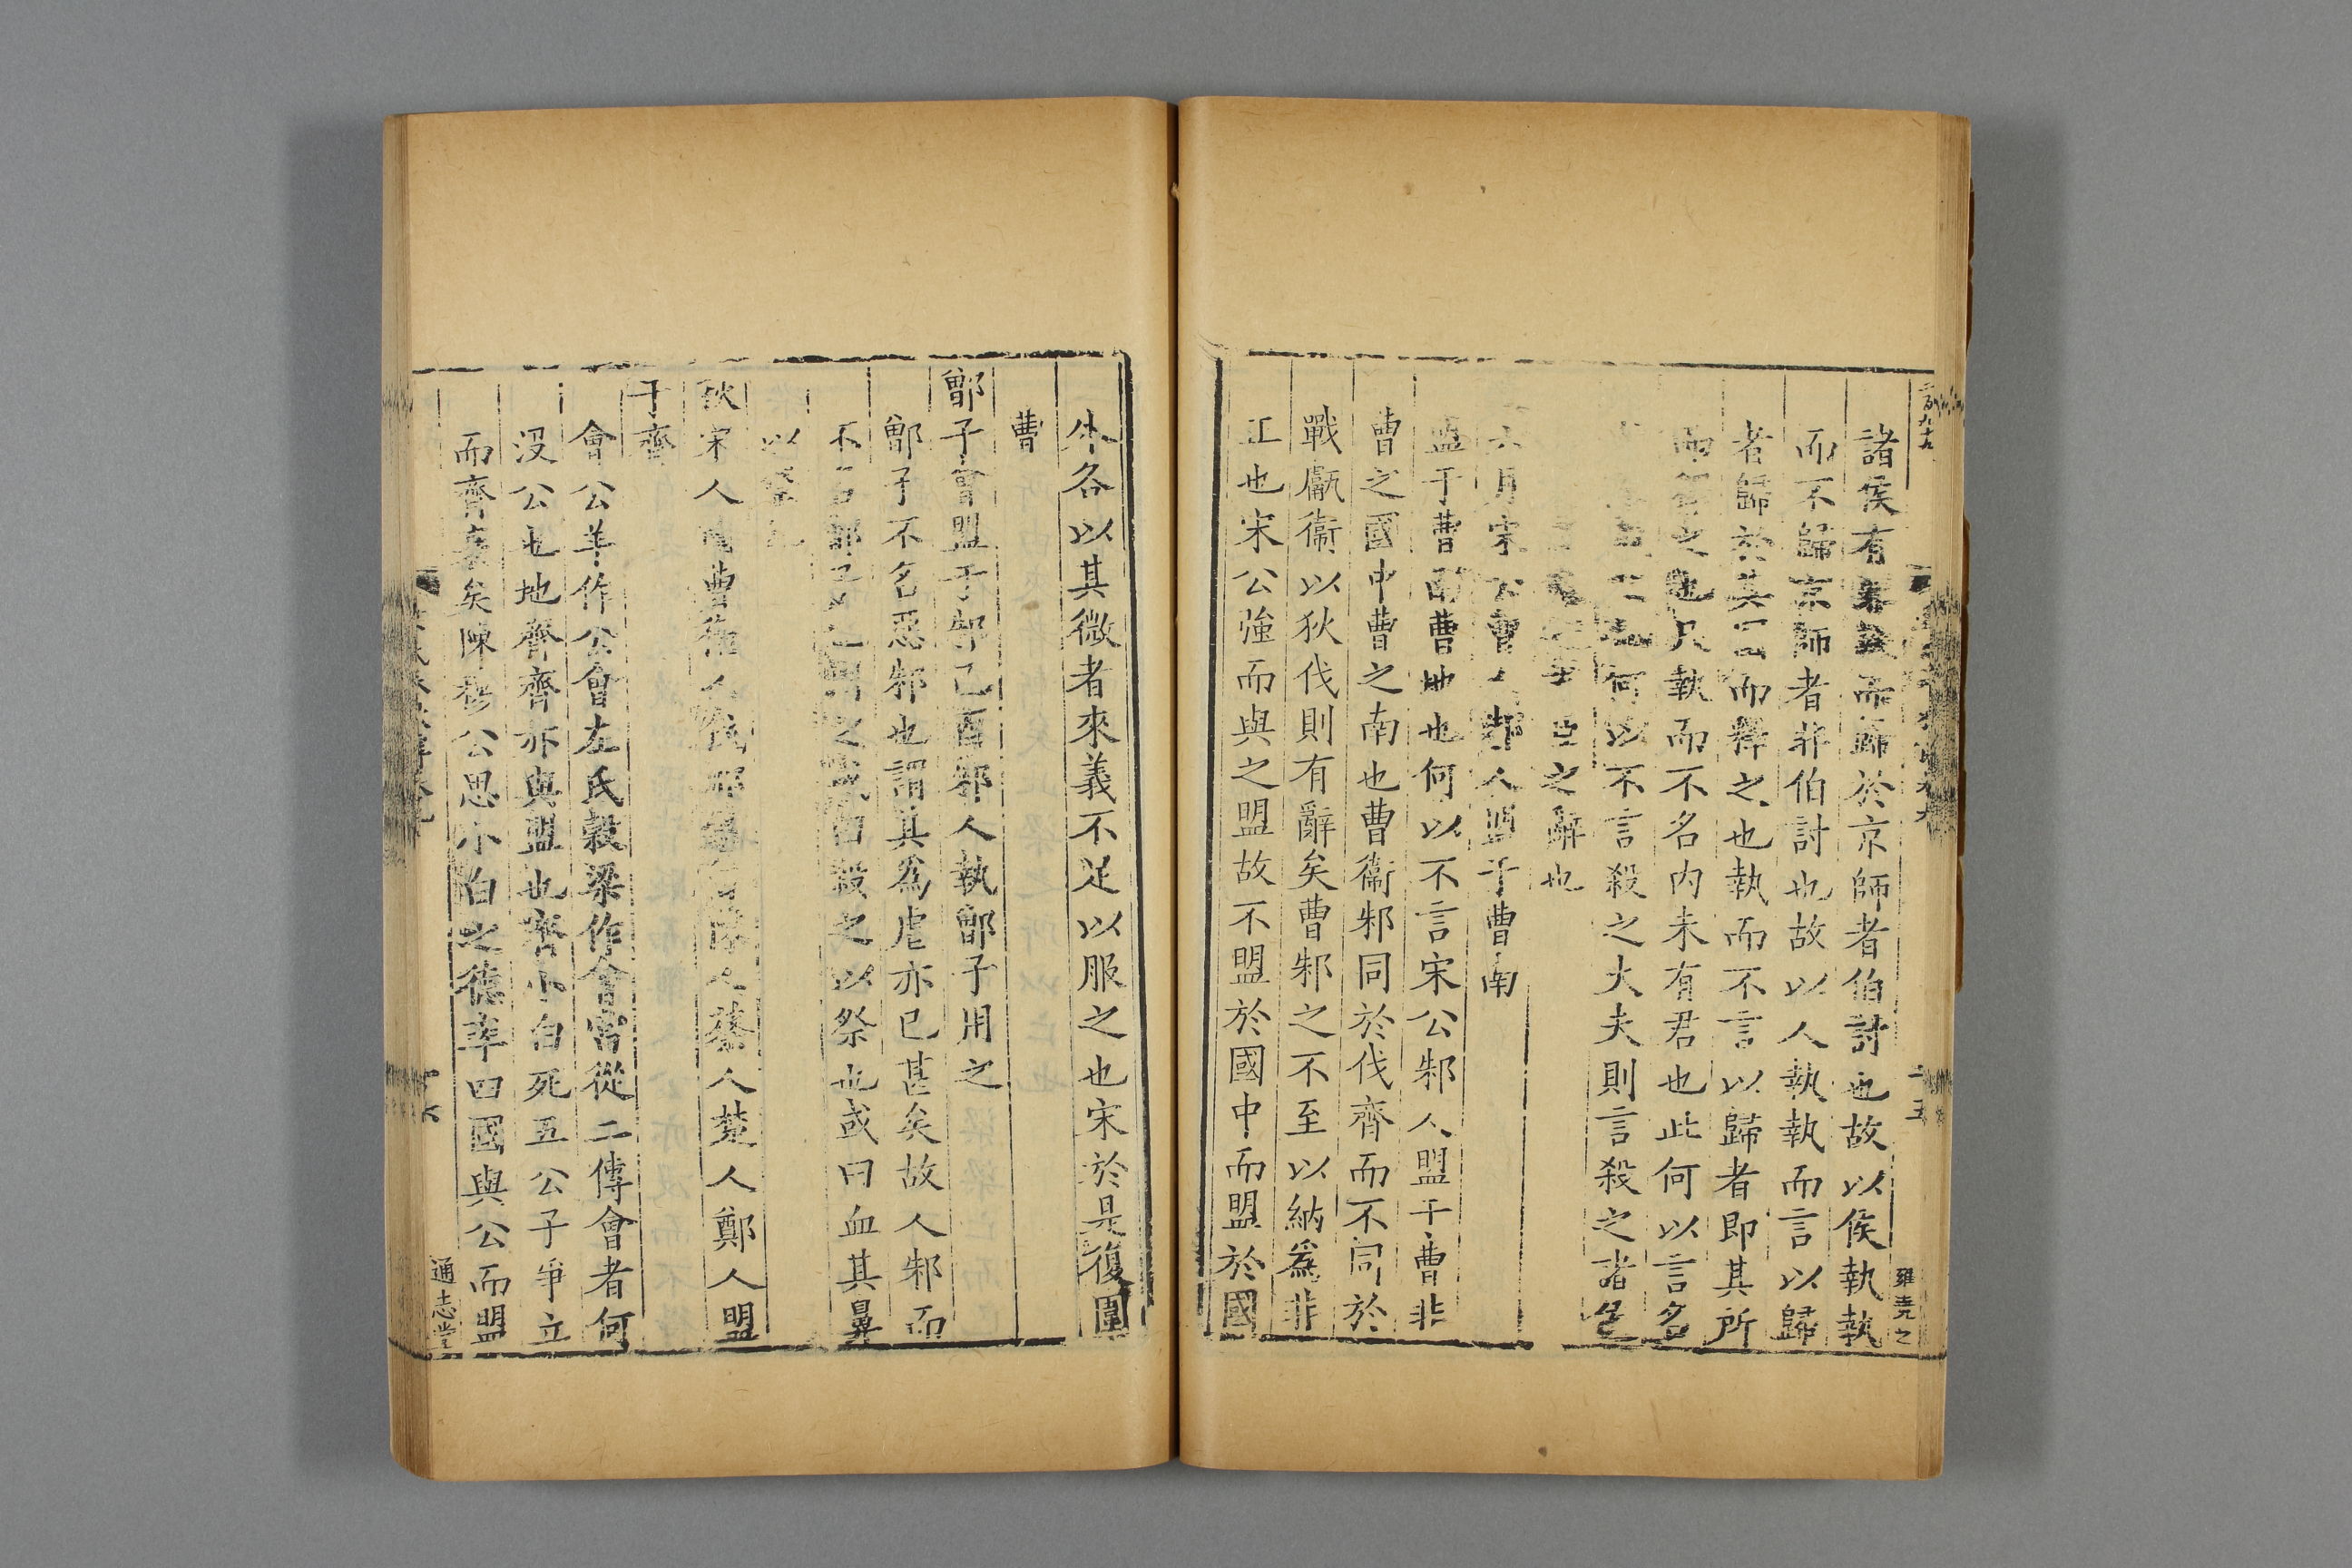 諸侯有罪執而歸於京師者伯討也故以侯執執
而不歸京師者非伯討也故以人執執而言以歸
者歸於其國而釋之也執而不言以歸者即其所
而執而不名內未有君也此何以言名
何以不言殺之大夫則言殺之諸侯
之辭也
六月宋公曹人邾人盟于曹南
盟于曹南曹地也何以不言宋公邾人盟于曹非
曹之國中曹之南也曹衞邾同於伐齊而不同於
戰甗衞以狄伐則有辭矣曹邾之不至以納爲非
正也宋公強而與之盟故不盟於國中而盟於國
外各以其微者來義不足以服之也宋於是復圍
曹
鄫子會盟于邾己酉邾人執鄫子用之
鄫子不名惡邾也謂其爲虐亦已甚矣故人邾而
不名鄫子之用之殺之以祭也或曰血其鼻
以
秋宋人曹人伐邾陳人蔡人楚人鄭人盟
于齊
會公羊作公會左氏穀梁作會當從二傳會者何
沒公也地齊齊亦與盟也齊小白死五公子爭立
而齊衰矣陳穆公思小白之德率四國與公而盟
通志堂
二五